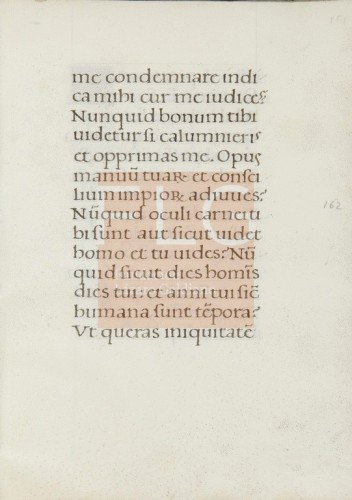 me condemnare indi
ca mihi cur me iudices?
Nunquid bonum tibi
uidetur si calumnieris
et opprimas me. Opus
manuū tuaꝝ et consi
lium impioꝝ adiuues?
Nūquid oculi carnei ti
bi sunt aut sicut uidet
homo et tu uides? Nū
quid sicut dies homīs
dies tui: et anni tui sic̄
humana sunt tēpora?
Vt queras iniquitatē
162